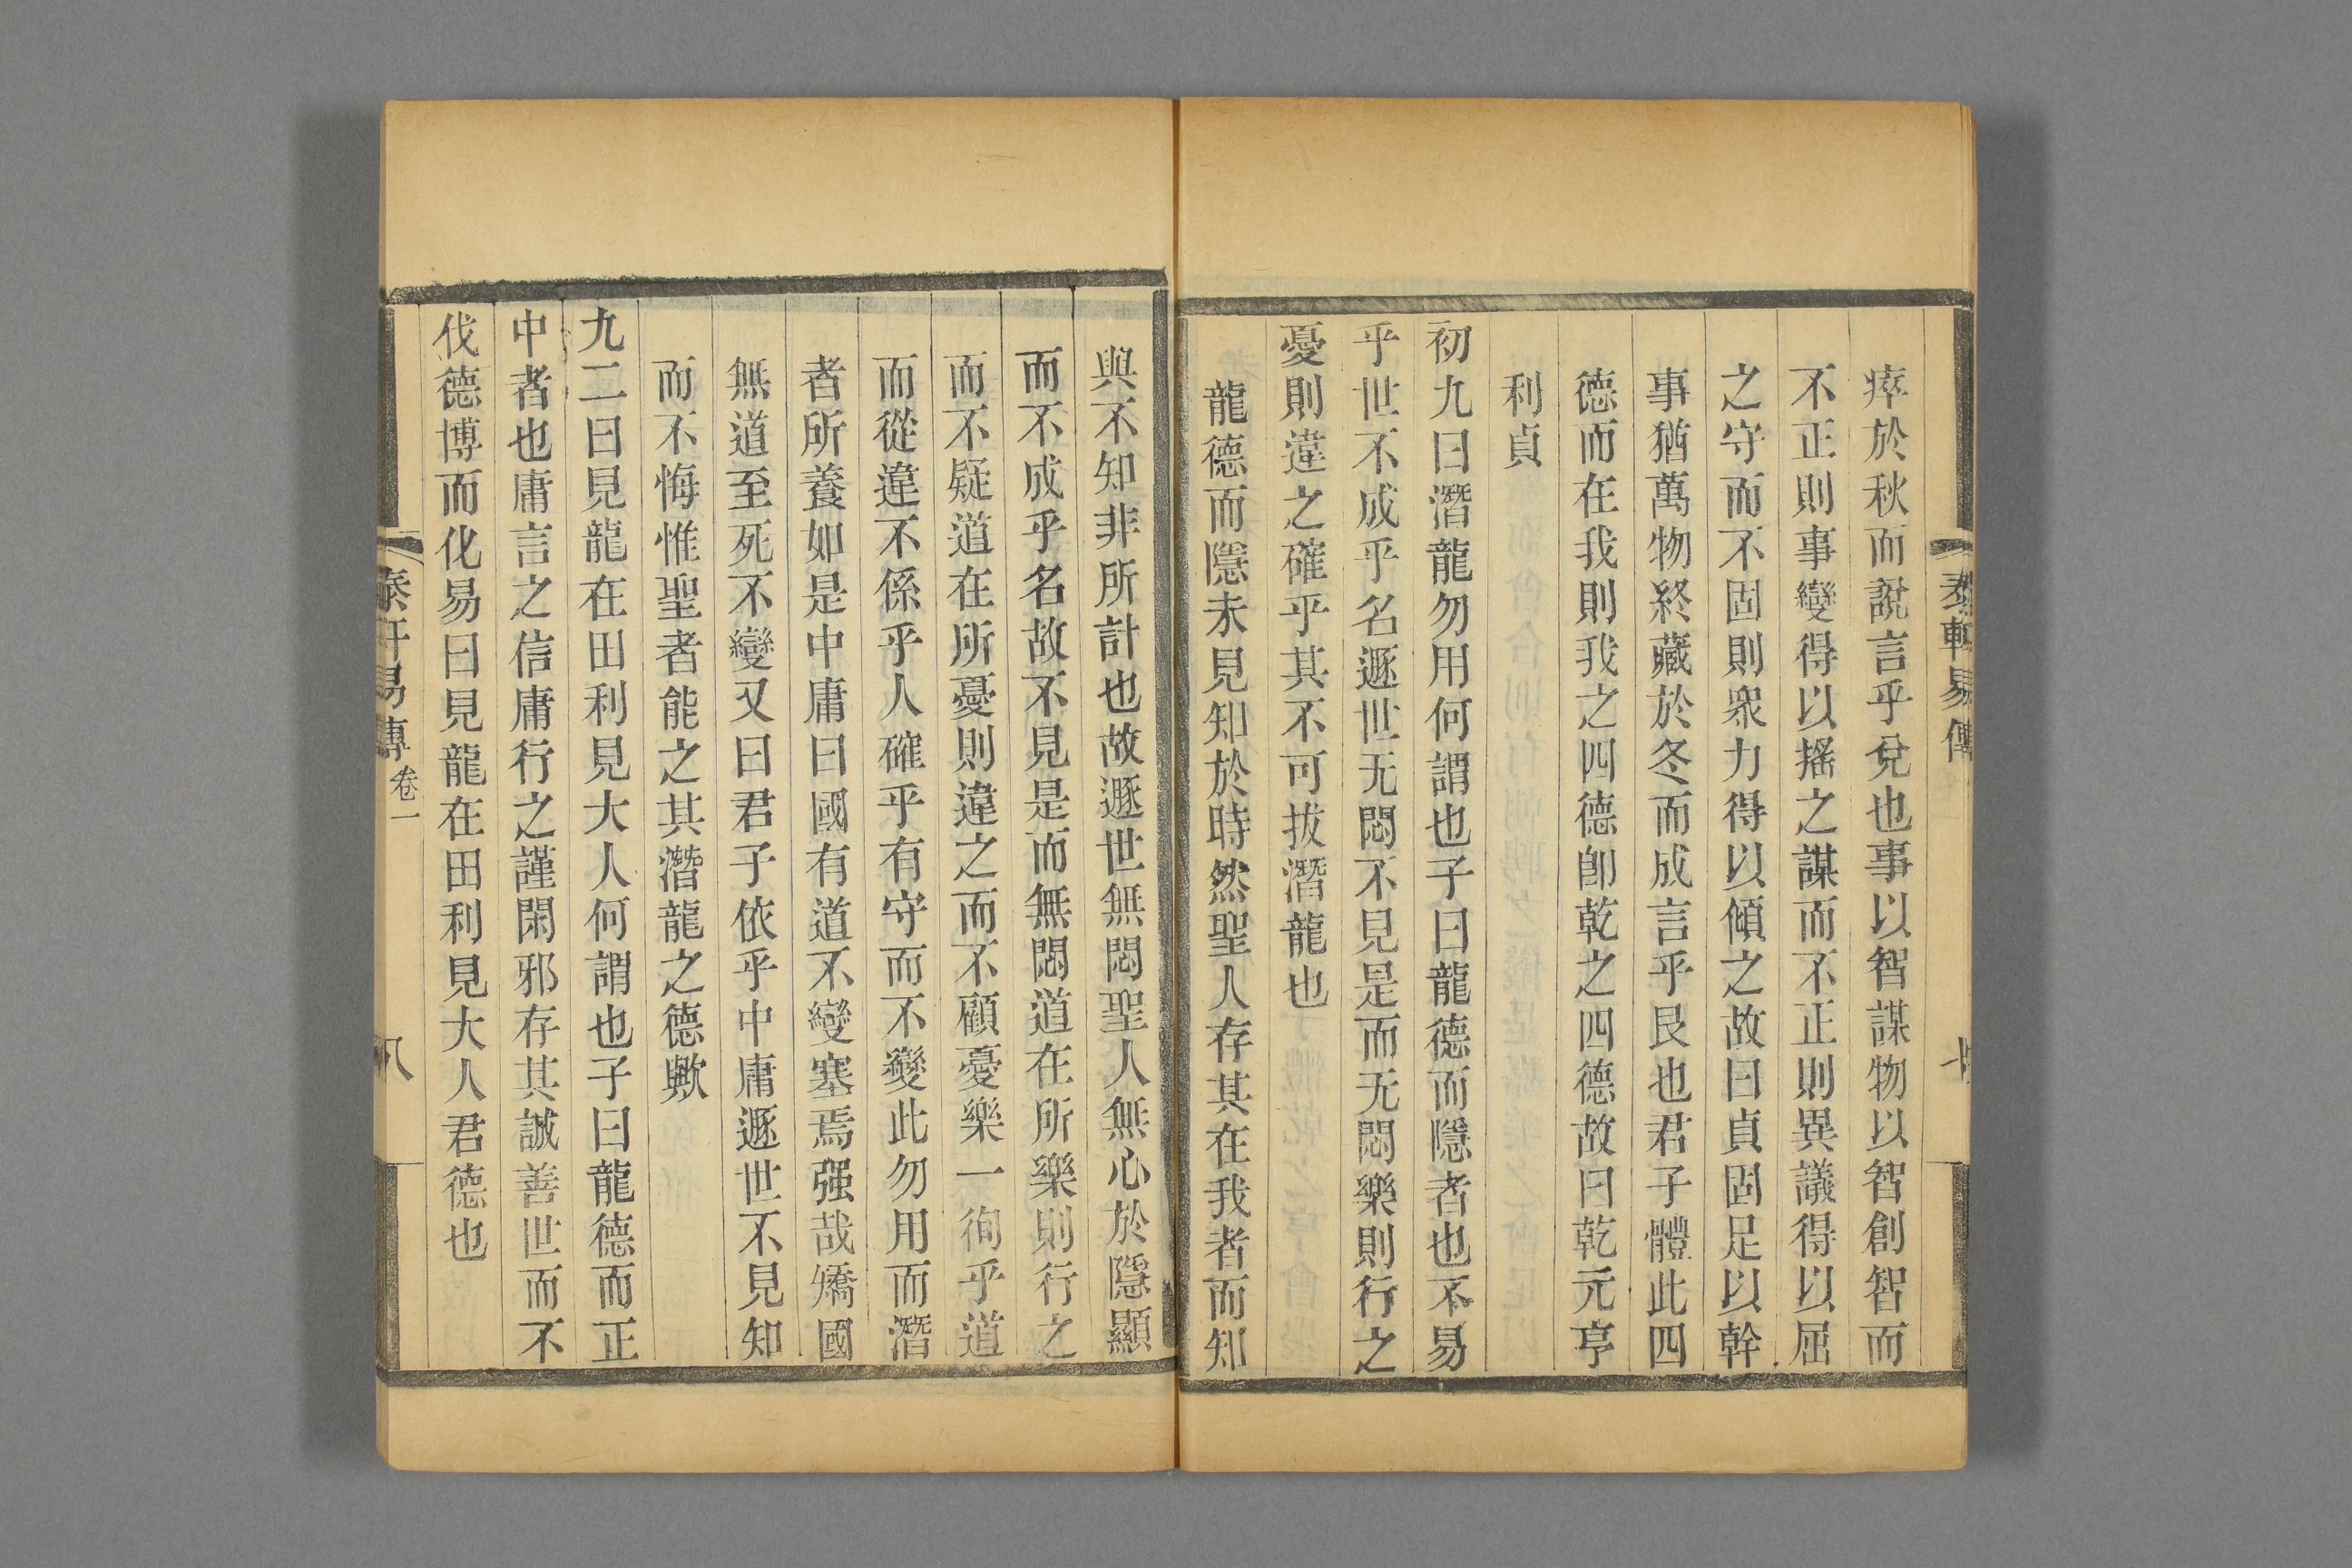 瘁於秋而說言乎兌也事以智謀物以智創智而
不正則事變得以搖之謀而不正則異議得以屈
之守而不固則衆力得以傾之故曰貞固足以幹
事猶萬物終藏於冬而成言乎艮也君子體此四
德而在我則我之四德卽乾之四德故曰乾元亨
利貞
初九曰潛龍勿用何謂也子曰龍德而隱者也不易
乎世不成乎名遯世无悶不見是而无悶樂則行之
憂則違之確乎其不可拔潛龍也
龍德而隱未見知於時然聖人存其在我者而知
與不知非所計也故遯世無悶聖人無心於隱顯
而不成乎名故不見是而無悶道在所樂則行之
而不疑道在所憂則違之而不顧憂樂一徇乎道
而從違不係乎人確乎有守而不變此勿用而潛
者所養如是中庸曰國有道不變塞焉强哉矯國
無道至死不變又曰君子依乎中庸遯世不見知
而不悔惟聖者能之其潛龍之德歟
九二曰見龍在田利見大人何謂也子曰龍德而正
中者也庸言之信庸行之謹閑邪存其誠善世而不
伐德博而化易曰見龍在田利見大人君德也
易傳
卷一
八